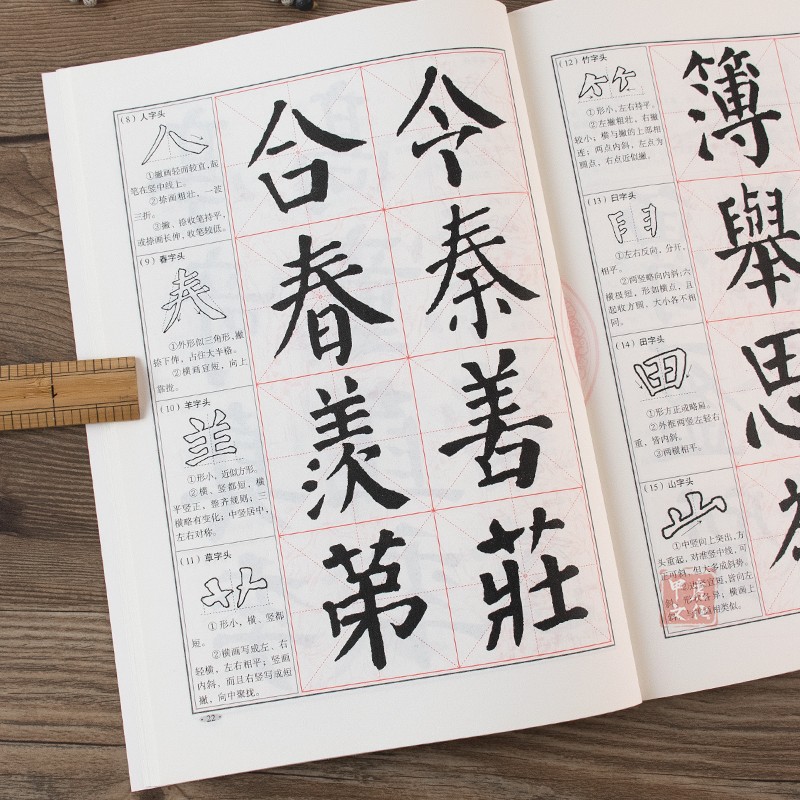 (8)人字头
人
①撇画轻而较直,起
笔在竖中线上。
②捺画粗壮,一波
三折。
③撇、捺收笔持平,
或捺画长伸,收笔较低。
合 今
(9)春字头
①外形似三角形,撇
捺下伸,占住大半格。
②横画宜短,向上
靠拢。
春 秦
(10)羊字头
①形小,近似方形。
②横、竖都短,横
平竖正,整齐规则;三
横略有变化;中竖居中,
左右对称。
羨 善
(11)草字头
①形小,横、竖都
短。
②横画写成左、右
轻横,左右相平;竖画
内斜,而且右竖写成短
撇,向中聚拢。
苐 莊
22
(12)竹字头
①形小,左右持平。
②左撇粗壮,右撇
较小;横与撇的上部相
连;两点内斜,左点为
圆点,右点近似撇。
簿
(13)臼字头
①左右反向,分开,
相平。
②两竖略向内斜;六
横极短,形如横点,且
起收方圆、大小各不相
同。
舉
(14)田字头
田
①形方正或略扁。
②外框两竖左轻右
重,皆内斜。
③两横相平。
思
(15)山字头
山
①中竖向上突出,方
头重起,对准竖中线,可